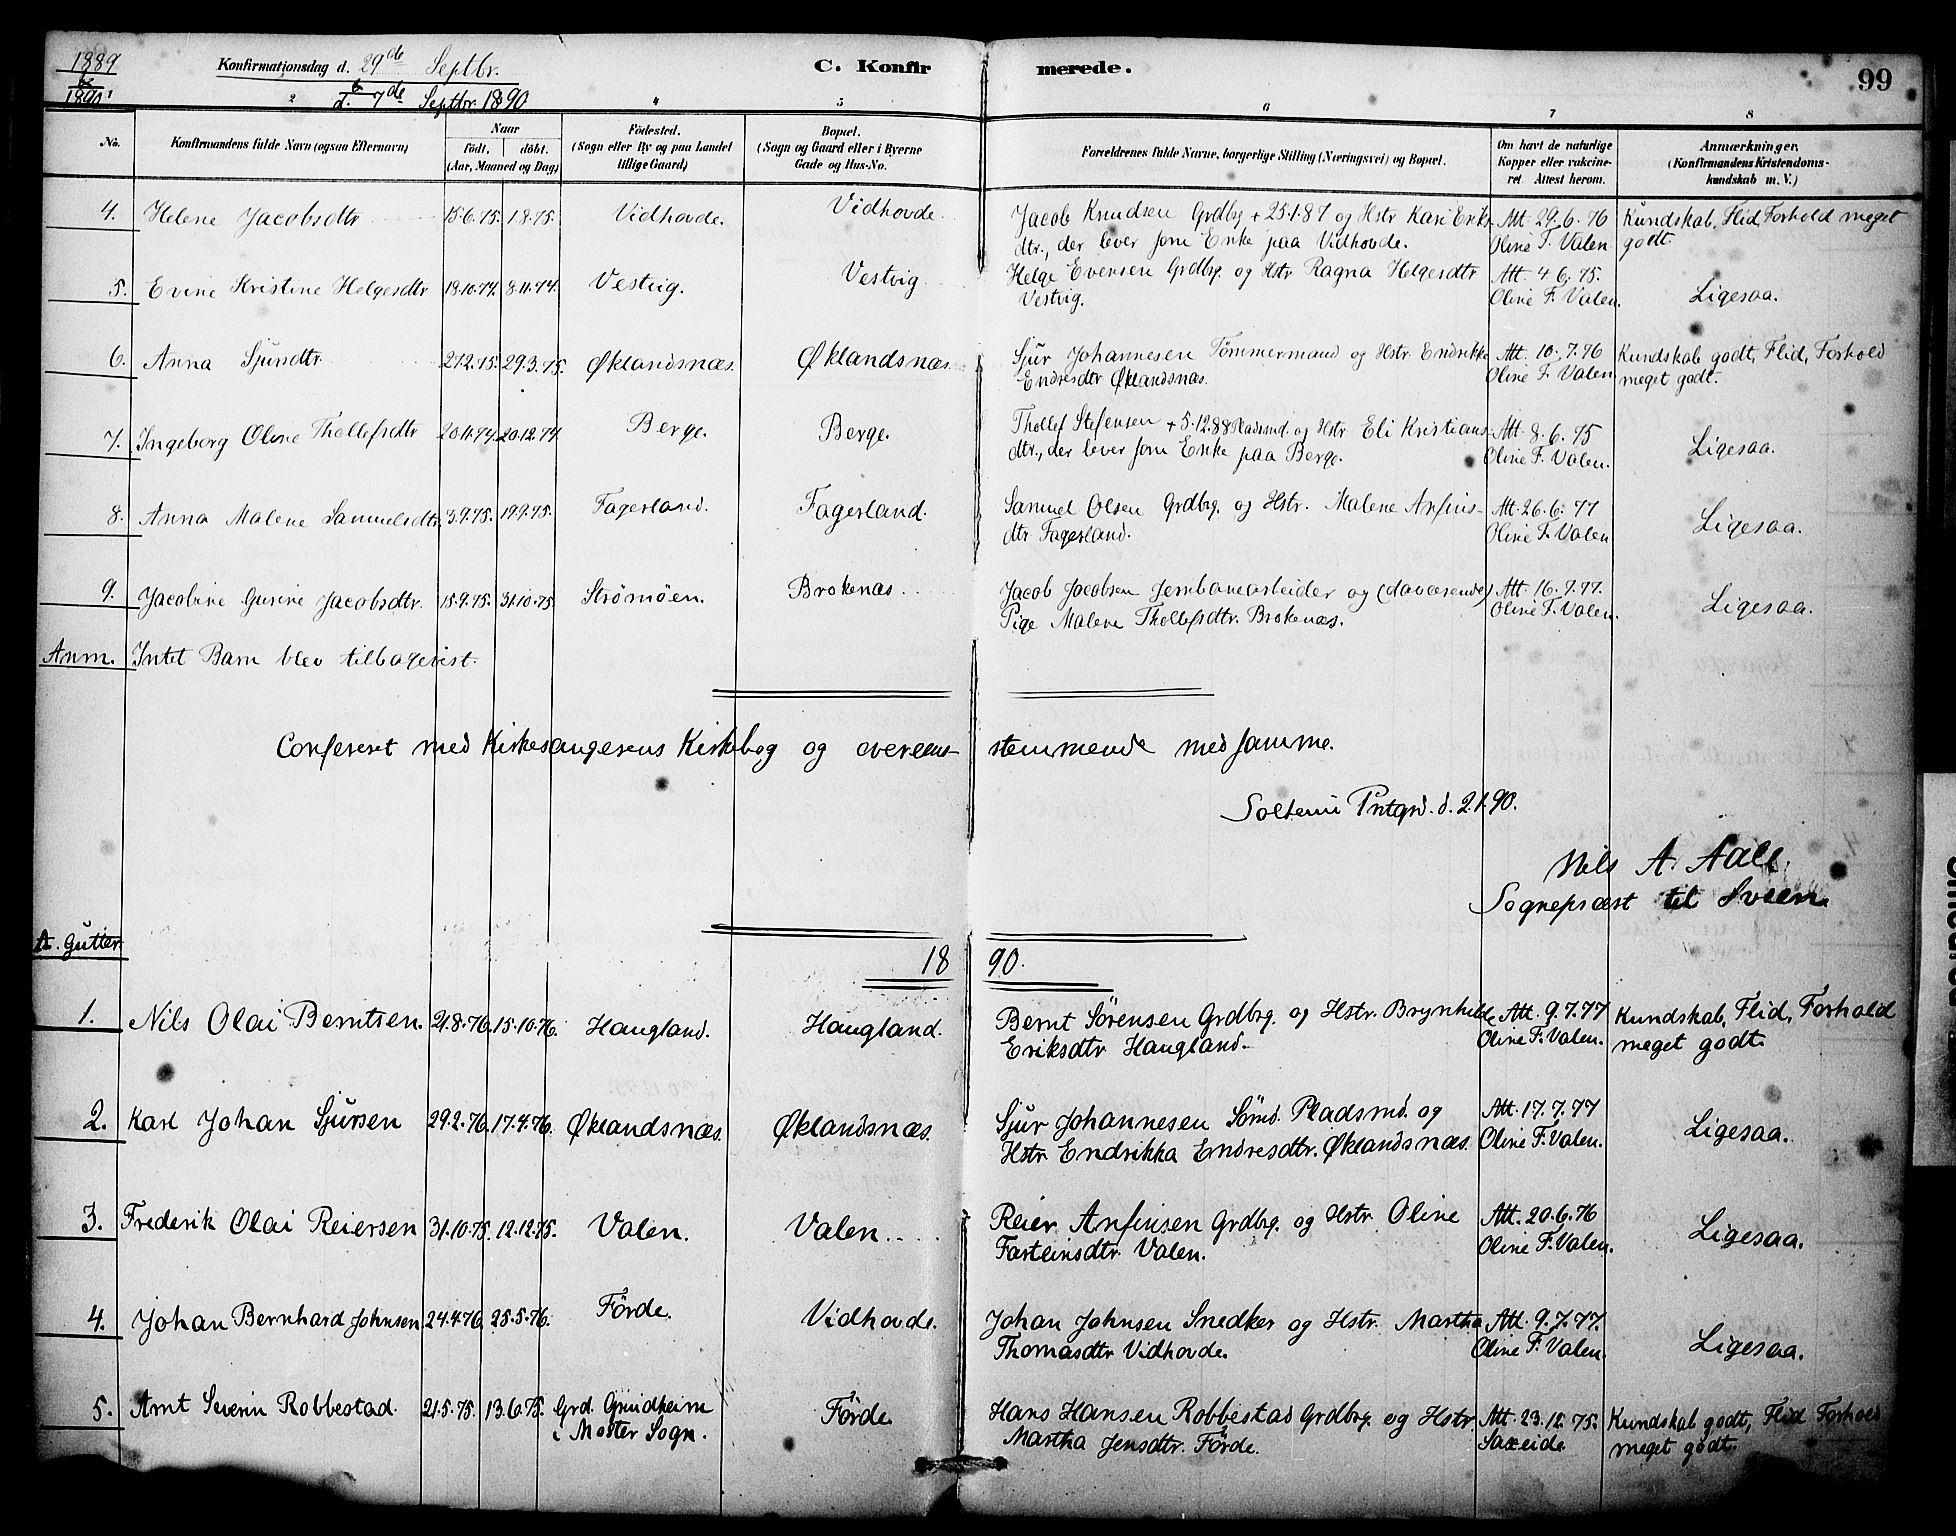 1889 Konfirmationsdag d. 29de Septbr. C. Konfirmerede. 99
&
1890 d. 7de Septbr. 1890
1 2 4 5 6 7 8
No. Konfirmandens fulde Navn (ogsaa Efternavn) Naar født, døbt. (Aar, Maaned og Dag) Fødested. (Sogn eller By og paa Landet tillige Gaard) Bopæl. (Sogn og Gaard eller i Byerne Gade og Hus-No. Forældrenes fulde Navne, borgerlige Stilling (Næringsvei) og Bopæl. Om havt de naturlige Kopper eller vakcineret. Attest herom. Anmærkninger. (Konfirmandens Kristendomskundskab m. V.)
4. Helene Jacobsdtr 15.6.75. 1.8.75. Vidhovde. Vidhovde. Jacob Knudsen Grdbrg + 25.1.87 og Hstr Kari Eriks- Att. 29.6.76 Kundskab, Flid, Forhold meget
dtr., der lever som Enke paa Vidhovde. Oline F. Valen godt.
5. Evine Kristine Helgesdtr 19.10.74. 8.11.74. Vestvig. Vestvig Helge Evensen Grdbrg. og Hstr Ragna Helgesdtr Att. 4.6.75.
Vestvig. Oline F. Valen. Ligesaa.
6. Anna Sjursdtr 21.2.75. 29.3.75. Øklandsnæs. Øklandsnæs. Sjur Johannesen Tömmermand og Hstr Endrikke Att. 10.7.76 Kundskab godt, Flid, Forhold
Endresdtr Øklandsnæs. Oline F. Valen meget godt.
7. Ingeborg Oline Thollefsdtr 20.11.74. 20.12.74. Berge. Berge. Thollef Stefensen + 5.12.88 Pladsmd. og Hstr Eli Kristians- Att. 8.6.75
dtr., der lever som Enke paa Berge. Oline F. Valen. Ligesaa.
8. Anna Malene Samuelsdtr. 3.9.75. 19.9.75. Fagerland. Fagerland. Samuel Olsen Grdbrg. og Hstr. Malene Anfins- Att. 26.6.77
dtr Fagerland. Oline F. Valen Ligesaa.
9. Jacobine Gurine Jacobsdtr. 15.9.75. 31.10.75. Strømøen. Brokenæs. Jacob Jacobsen Jernbanearbeider og (daværende) Att. 16.7.77.
Pige Malene Thollefsdtr. Brokenæs. Oline F. Valen. Ligesaa.
Anm. Intet Barn blev tilbagevist.
Confereret med Kirkesangerens Kirkebog og overens- stemmende med samme.
Prstgrd. d. 2.1.90.
Nils A. Aall.
Sognepræst til Sveen.
A. Gutter.
18 90.
1. Nils Olai Berntsen 21.8.76. 15.10.76. Haugland. Haugland. Bernt Sörensen Grdbrg. og Hstr. Brynhilde Att. 9.7.77 Kundskab, Flid, Forhold
Eriksdtr Haugland. Oline F. Valen. meget godt.
2. Karl Johan Sjursen 29.2.76. 17.4.76. Øklandsnæs. Øklandsnæs. Sjur Johannesen Tömd. Pladsmd. og Att. 17.7.77
Hstr Endrikka Endresdtr. Øklandsnæs. Oline F. Valen. Ligesaa.
3. Frederik Olai Reiersen 31.10.75. 12.12.75. Valen. Valen. Reier Anfinsen Grdbrg. og Hstr. Oline Att. 20.6.76
Farteinsdtr. Valen. Oline F. Valen. Ligesaa.
4. Johan Bernhard Johnsen 24.4.76. 25.5.76. Förde. Vidhovde. Johan Johnsen Snedker og Hstr. Martha Att. 9.7.77.
Thomasdtr Vidhovde. Oline F. Valen. Ligesaa.
5. Arnt Severin Robbestad. 21.5.75. 13.6.75. Grd. Grindheim Förde. Hans Hansen Robbestad Grdbrg. og Hstr. Att. 23.12.75. Kundskab godt, Flid Forhold
i Moster Sogn. Martha Jensdtr. Förde. Saxeide. meget godt.